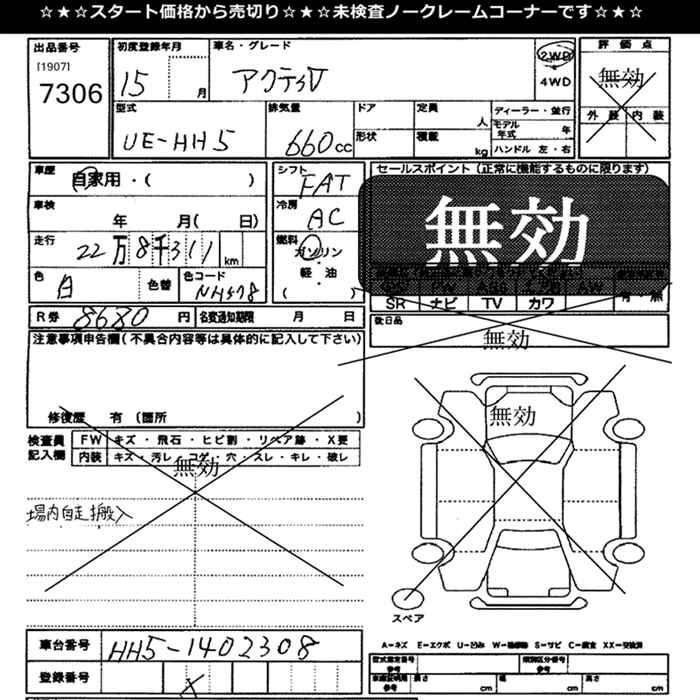 ☆★☆スタート価格から売切り☆★☆未検査ノークレームコーナーです☆★☆
出品番号
[1907]
7306
初度登録年月
15 月
車名・グレード
アクティV
2WD
4WD
評価点
無効
外装 内装
型式
UE-HH5
排気量
660cc
ドア
形状
定員
人
積載
kg
ディーラー・並行
モデル年式 年
ハンドル 左・右
車歴
自家用・( )
車検
年 月( 日)
走行
22万8千311 km
色
白
色替
色コード
NH578
シフト
FAT
冷房
AC
燃料
ガソリン
軽・油
( )
セールスポイント (正常に機能するものに限ります)
無効
SR ナビ TV カワ
有・無
R券 8680 円
名変通知期限 月 日
後日品
無効
注意事項申告欄(不具合内容等は具体的に記入して下さい)
修復歴 有 (箇所 )
検査員記入欄
FW キズ・飛石・ヒビ割・リペア跡・X要
内装 キズ・汚レ・コゲ・穴・スレ・キレ・破レ
無効
場内自走搬入
無効
スペア
車台番号 HH5-1402308
登録番号
A-キズ E-エクボ U-凹み
S-サビ C-腐食
型式指定番号
参考
類別区分番号
参考
長さ cm 幅 cm 高さ cm